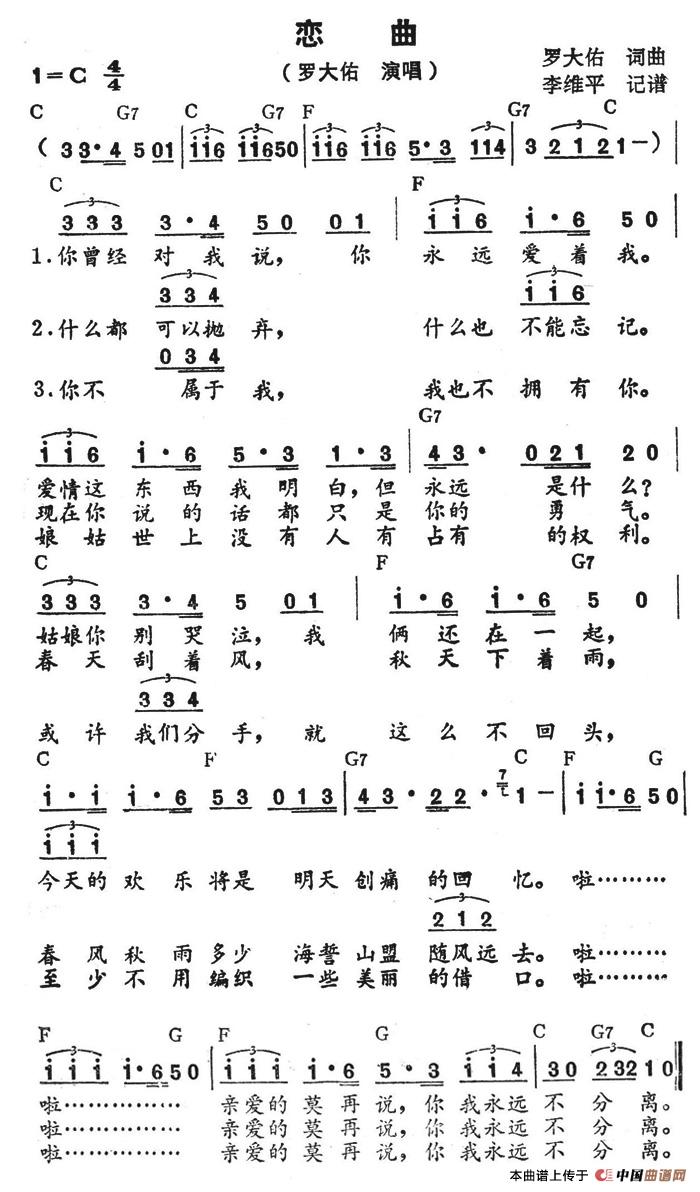 恋 曲
1=C 4/4
（罗大佑 演唱）
罗大佑 词曲
李维平 记谱
C G7 C G7 F G7 C
( 3 3·4 5 01 | i i 6 i i 6 5 0 | i i 6 i i 6 5·3 1 1 4 | 3 2 1 2 1 — )
C F
3 3 3 3·4 5 0 0 1 | i i 6 i·6 5 0
1.你曾经 对 我 说， 你 永 远 爱 着 我。
3 3 4 i i 6
2.什么都 可以抛 弃， 什么也 不能忘 记。
0 3 4
3.你不 属于 我， 我也不 拥有 你。
G7
i i 6 i·6 5·3 1·3 | 4 3· 0 2 1 2 0
爱情这 东 西 我 明 白，但 永远 是什 么？
现在你 说 的 话 都 只 是 你的 勇 气。
娘 姑 世 上 没 有 人 有 占有 的权 利。
C F G7
3 3 3 3·4 5 0 1 | i·6 i·6 5 0
姑娘你 别 哭 泣， 我 俩 还 在 一 起，
春 天 刮 着 风， 秋 天 下 着 雨，
3 3 4
或 许 我们分 手， 就 这 么 不 回 头，
C F G7 C F G
i·i i·6 5 3 0 1 3 | 4 3·2 2· 7 1 — | i i·6 5 0
i i i
今天的 欢 乐 将是 明天 创痛 的回 忆。 啦………
2 1 2
春 风 秋 雨 多少 海誓 山盟 随风远 去。 啦………
至 少 不 用 编织 一些 美丽 的借 口。 啦………
F G F G C G7 C
i i i i·6 5 0 | i i i i·6 5·3 i i 4 | 3 0 2 3 2 1 0
啦…………… 亲爱的 莫再 说，你 我永远 不 分 离。
啦…………… 亲爱的 莫再 说，你 我永远 不 分 离。
啦…………… 亲爱的 莫再 说，你 我永远 不 分 离。
本曲谱上传于 中国曲谱网